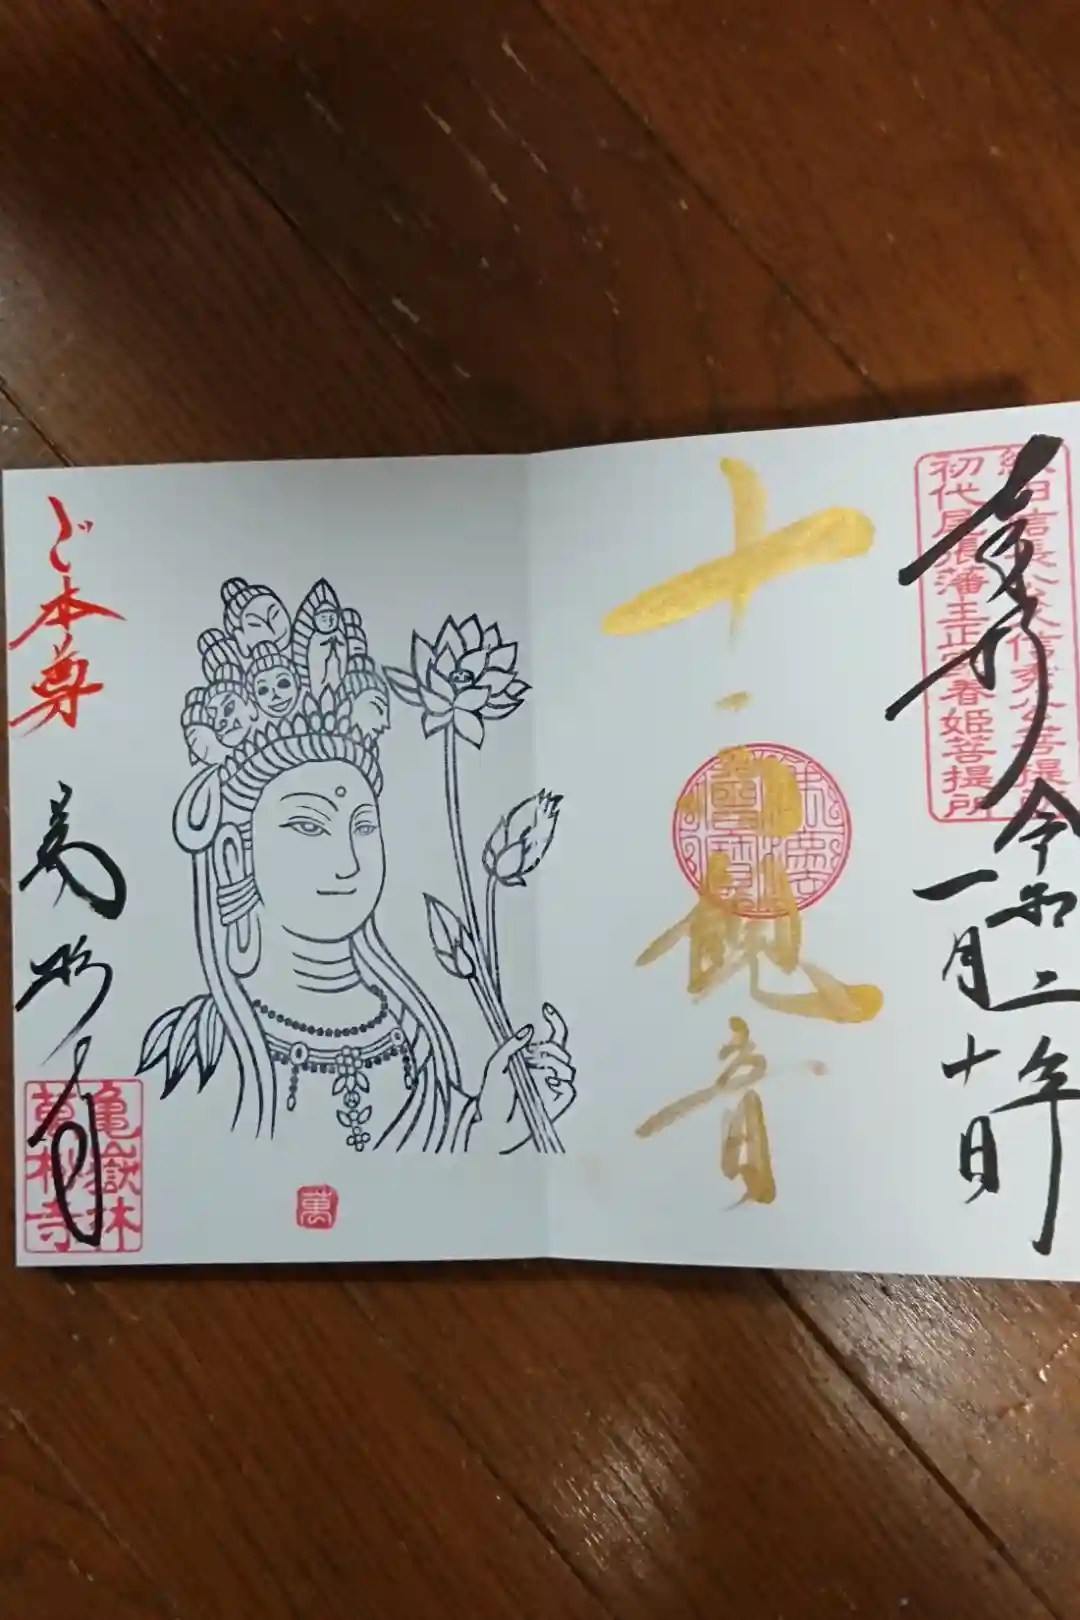 奉拝
織田信長公父信秀公菩提所
初代尾張藩主正室春姫菩提所
令和二年
一月十日
十一面観音
ご本尊
萬松寺
亀嶽林
萬松寺
萬